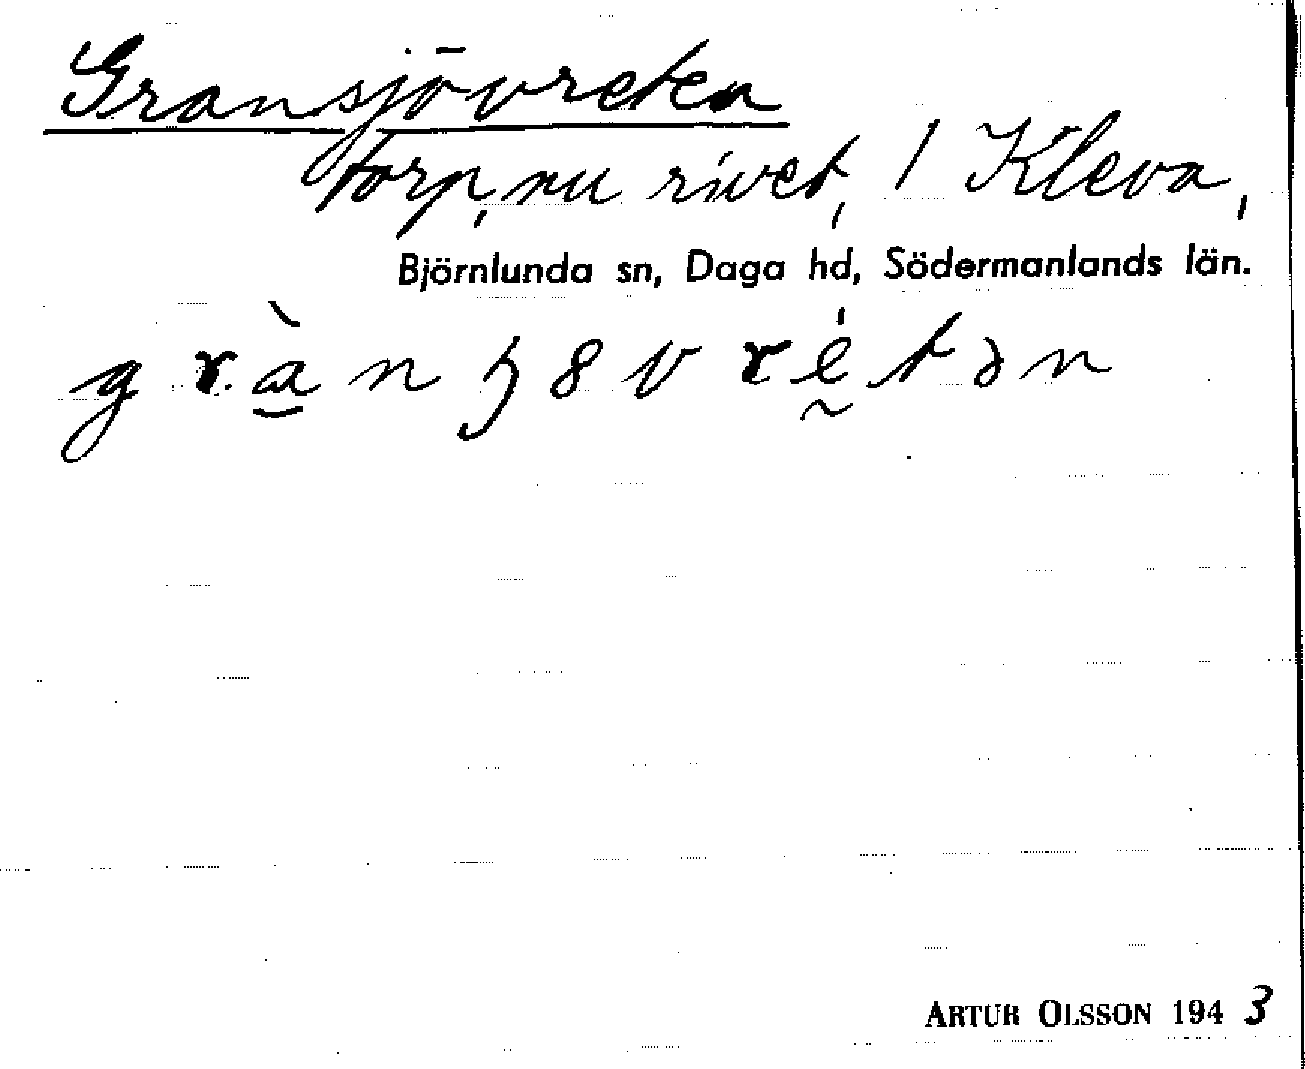 Gransjövreten
torp, nu rivet, 1 Kleva,
Björnlunda sn, Daga hd, Södermanlands län.
ARTUR OLSSON 1943